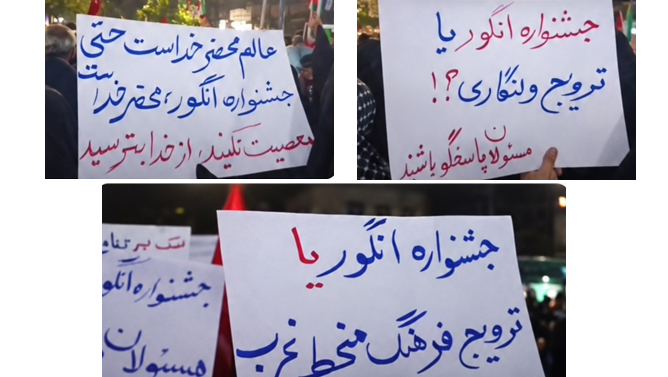 عالم محضر خداست حتی
جشنواره انگور، محضر خداست
معصیت نکنید، از خدا بترسید
جشنواره انگور یا
ترویج ولنگاری؟!
مسئولان پاسخگو باشند
جشنواره انگور یا
ترویج فرهنگ منحط غرب
ننگ بر
جشنواره انگو
مسئولان